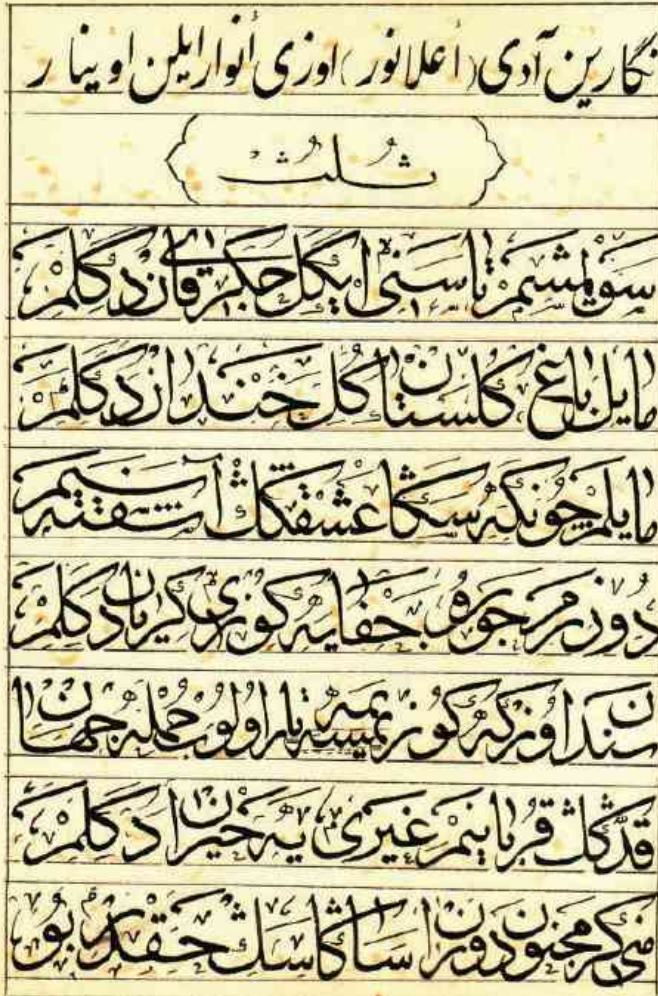 نگارین آدی (اعلا نور) اوزی أنوار ایلن اوینار
ثلث
سویمشم تا سنی ای گل جگری قان دگلم
مایل باغ گلستان گل خندان دگلم
مایلم چونکه سڭا عشقڭڭ آشفته سیم
دوزرم جورو جفایه گوزی گریان دگلم
سندن اوزگه گوزیمه تار اولوب جمله جهان
قدڭڭ قربانیم غیری یه حیران دگلم
منی گر مجنون دوران ساڭا سڭ حقدر بو